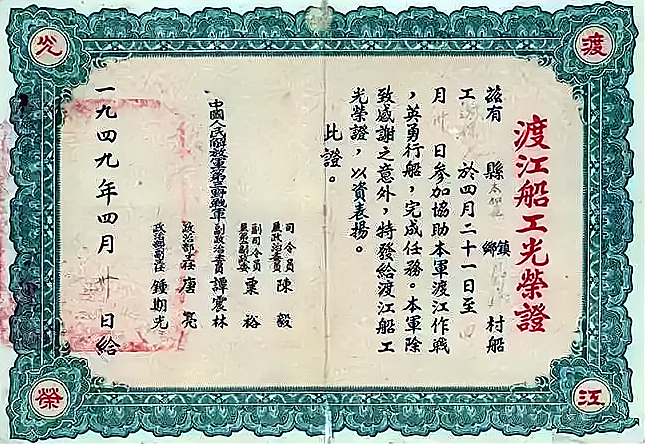 渡
江
光
榮
渡江船工光榮證
茲有 縣 鎮鄉 村船
工 於四月二十一日至
月卅日參加協助本軍渡江作戰
，英勇行船，完成任務。本軍除
致感謝之意外，特發給渡江船工
光榮證，以資表揚。
此證。
中國人民解放軍第三野戰軍
司令員
兼政治委員 陳毅
副司令員
粟裕
副政治委員 譚震林
政治部主任 唐亮
政治部副主任 鍾期光
一九四九年四月卅日給